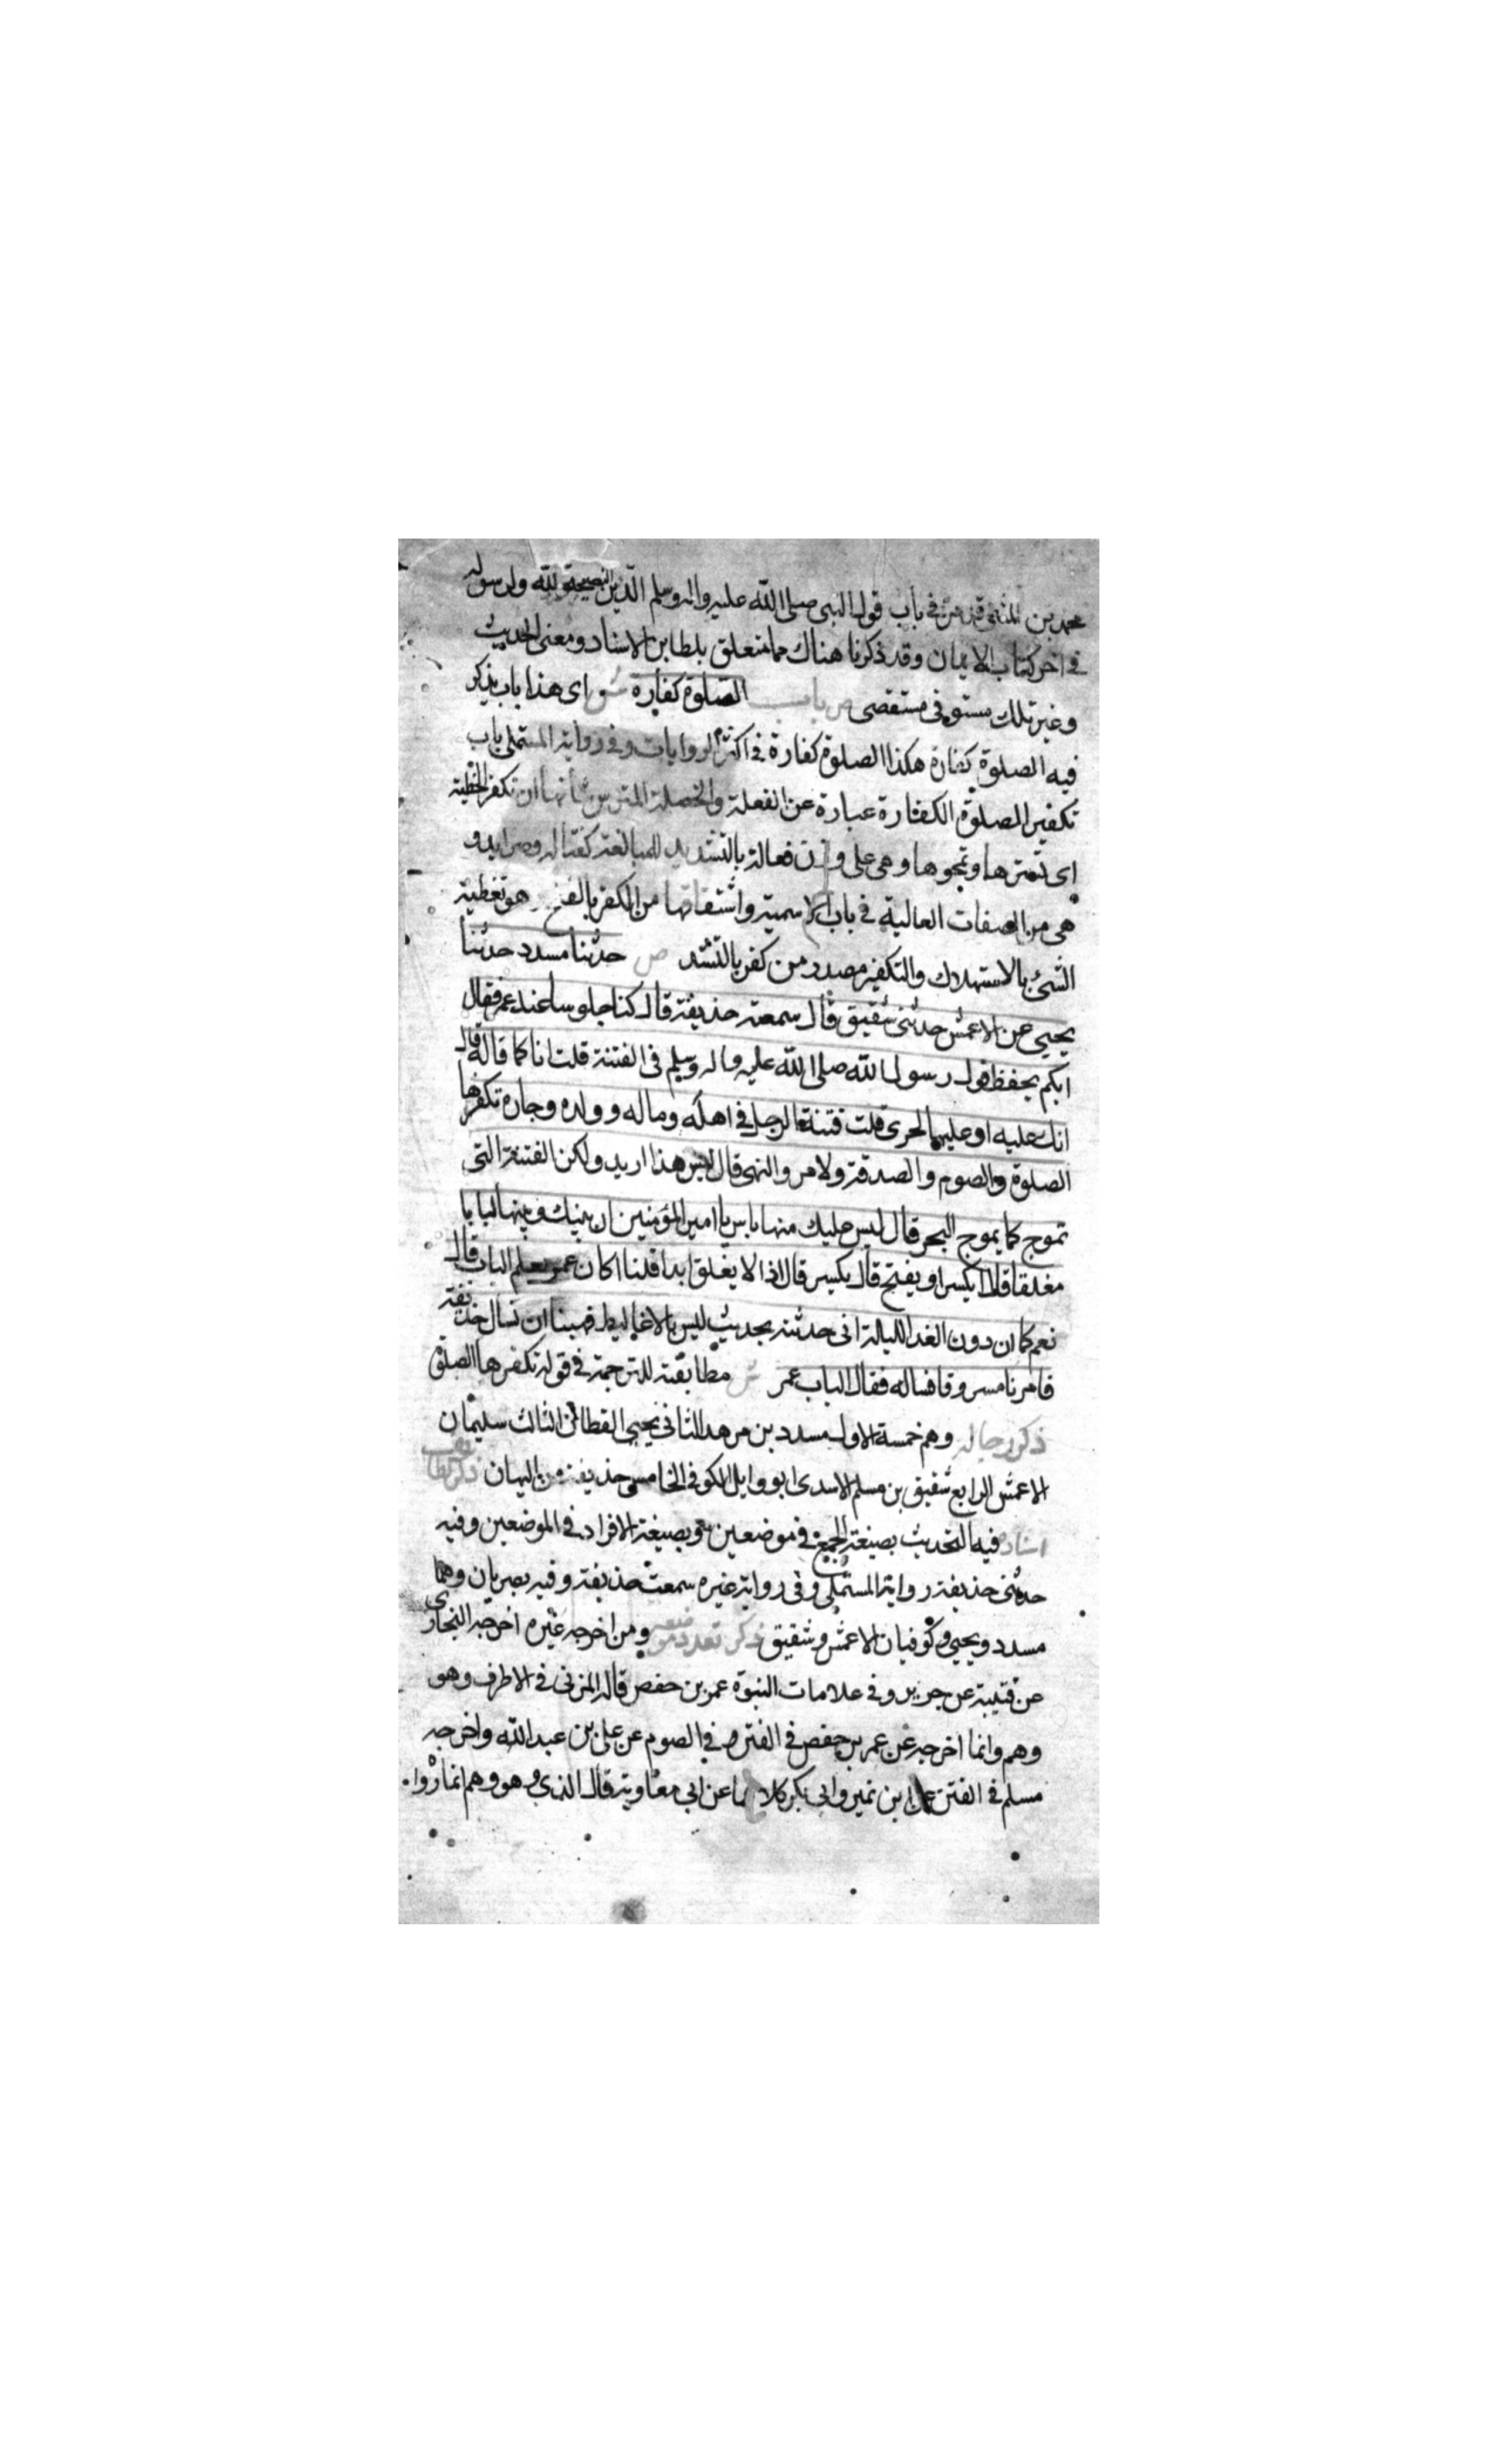 محمد بن المثنى قد مر في باب قول النبي صلى الله عليه واله وسلم الدين النصيحة لله ولرسوله
في اخر كتاب الايمان وقد ذكرنا هناك مما متعلق بلطايف الاسناد ومعنى الحديث
وغير تلك مستوفى مستقصى ص باب الصلوة كفارة ش اى هذا باب يذكر
فيه الصلوة كفارة هكذا الصلوة كفارة في اكثر الروايات وفي رواية المستملى باب
تكفير الصلوة الكفارة عبارة عن الفعلة والخصلة التى من شأنها أن تكفر الخطية
اى تسترها وتمحوها وهى على وزن فعالة بالتشديد للمبالغة كقتالة وضرابة و
هى من الصفات الغالبة في باب الاسمية واشتقاقها من الكفر بالفتح هو تغطية
الشئ بالاستهلاك والتكفير مصدر من كفر بالتشد ص حدثنا مسدد حدثنا
يحيى عن الاعمش حدثنى شقيق قال سمعت حذيفة قال كنا جلوسا عند عمر فقال
ايكم يحفظ قول رسول الله صلى الله عليه واله وسلم فى الفتنة قلت انا كما قاله قال
انك عليه او عليها لحرى قلت فتنة الرجل في اهله وماله وولده وجاره تكفرها
الصلوة والصوم والصدقة ولامر والنهى قال ليس هذا اريد ولكن الفتنة التى
تموج كما يموج البحر قال ليس عليك منها باس يا امير المؤمنين ان بينك وبينها لبابا
مغلقا قال ايكسر او يفتح قال يكسر قال اذا لا يغلق ابدا قلنا اكان عمر يعلم الباب قال
نعم كما ان دون الغد الليلة انى حدثته بحديث ليس بالاغاليط فهبنا ان نسال حذيفة
فامرنا مسروقا فساله فقال الباب عمر ش مطابقته للترجمة في قوله تكفرها الصلوة
ذكر رجاله وهم خمسة الاول مسدد بن مرهد الثانى يحيى القطان الثالث سليمان
الاعمش الرابع شقيق بن مسلم الاسدى ابو وايل الكوفى الخامس حذيفة بن اليمان ذكر لطايف
اسناده فيه التحديث بصيغة الجمع في موضعين وبصيغة الافراد في الموضعين وفيه
حدثنى حذيفة رواية المستملى وفى رواية غيره سمعت حذيفة وفيه بصريان وهما
مسدد ويحيى وكوفيان الاعمش وشقيق ذكر تعدد موضعه ومن اخرجه غيره اخرجه البخارى
عن قتيبة عن جرير وفي علامات النبوة عمر بن حفص قاله المزنى في الاطرف وهو
وهم وانما اخرجه عن عمر بن حفص في الفتن و في الصوم عن على بن عبد الله واخرجه
مسلم في الفتن عن ابن نمير وابى بكر كلاهما عن ابى معاوية قال الذي وهو وهم انما روا